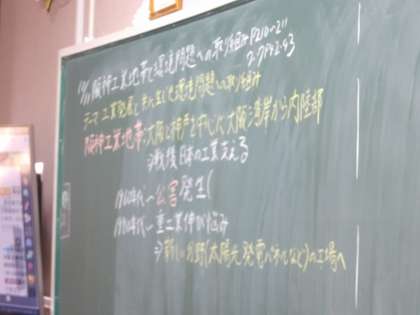 10/11 阪神工業地帯と環境問題への取り組み P210~211
ワ P92.93
テーマ 工業発展と共に生じた環境問題への取り組み
阪神工業地帯:大阪と神戸を中心に大阪湾岸から内陸部
⇒戦後日本の工業支える
1960年代~公害発生
1980年代~重工業伸び悩み
⇒新しい分野(太陽光発電パネルなど)の工場へ